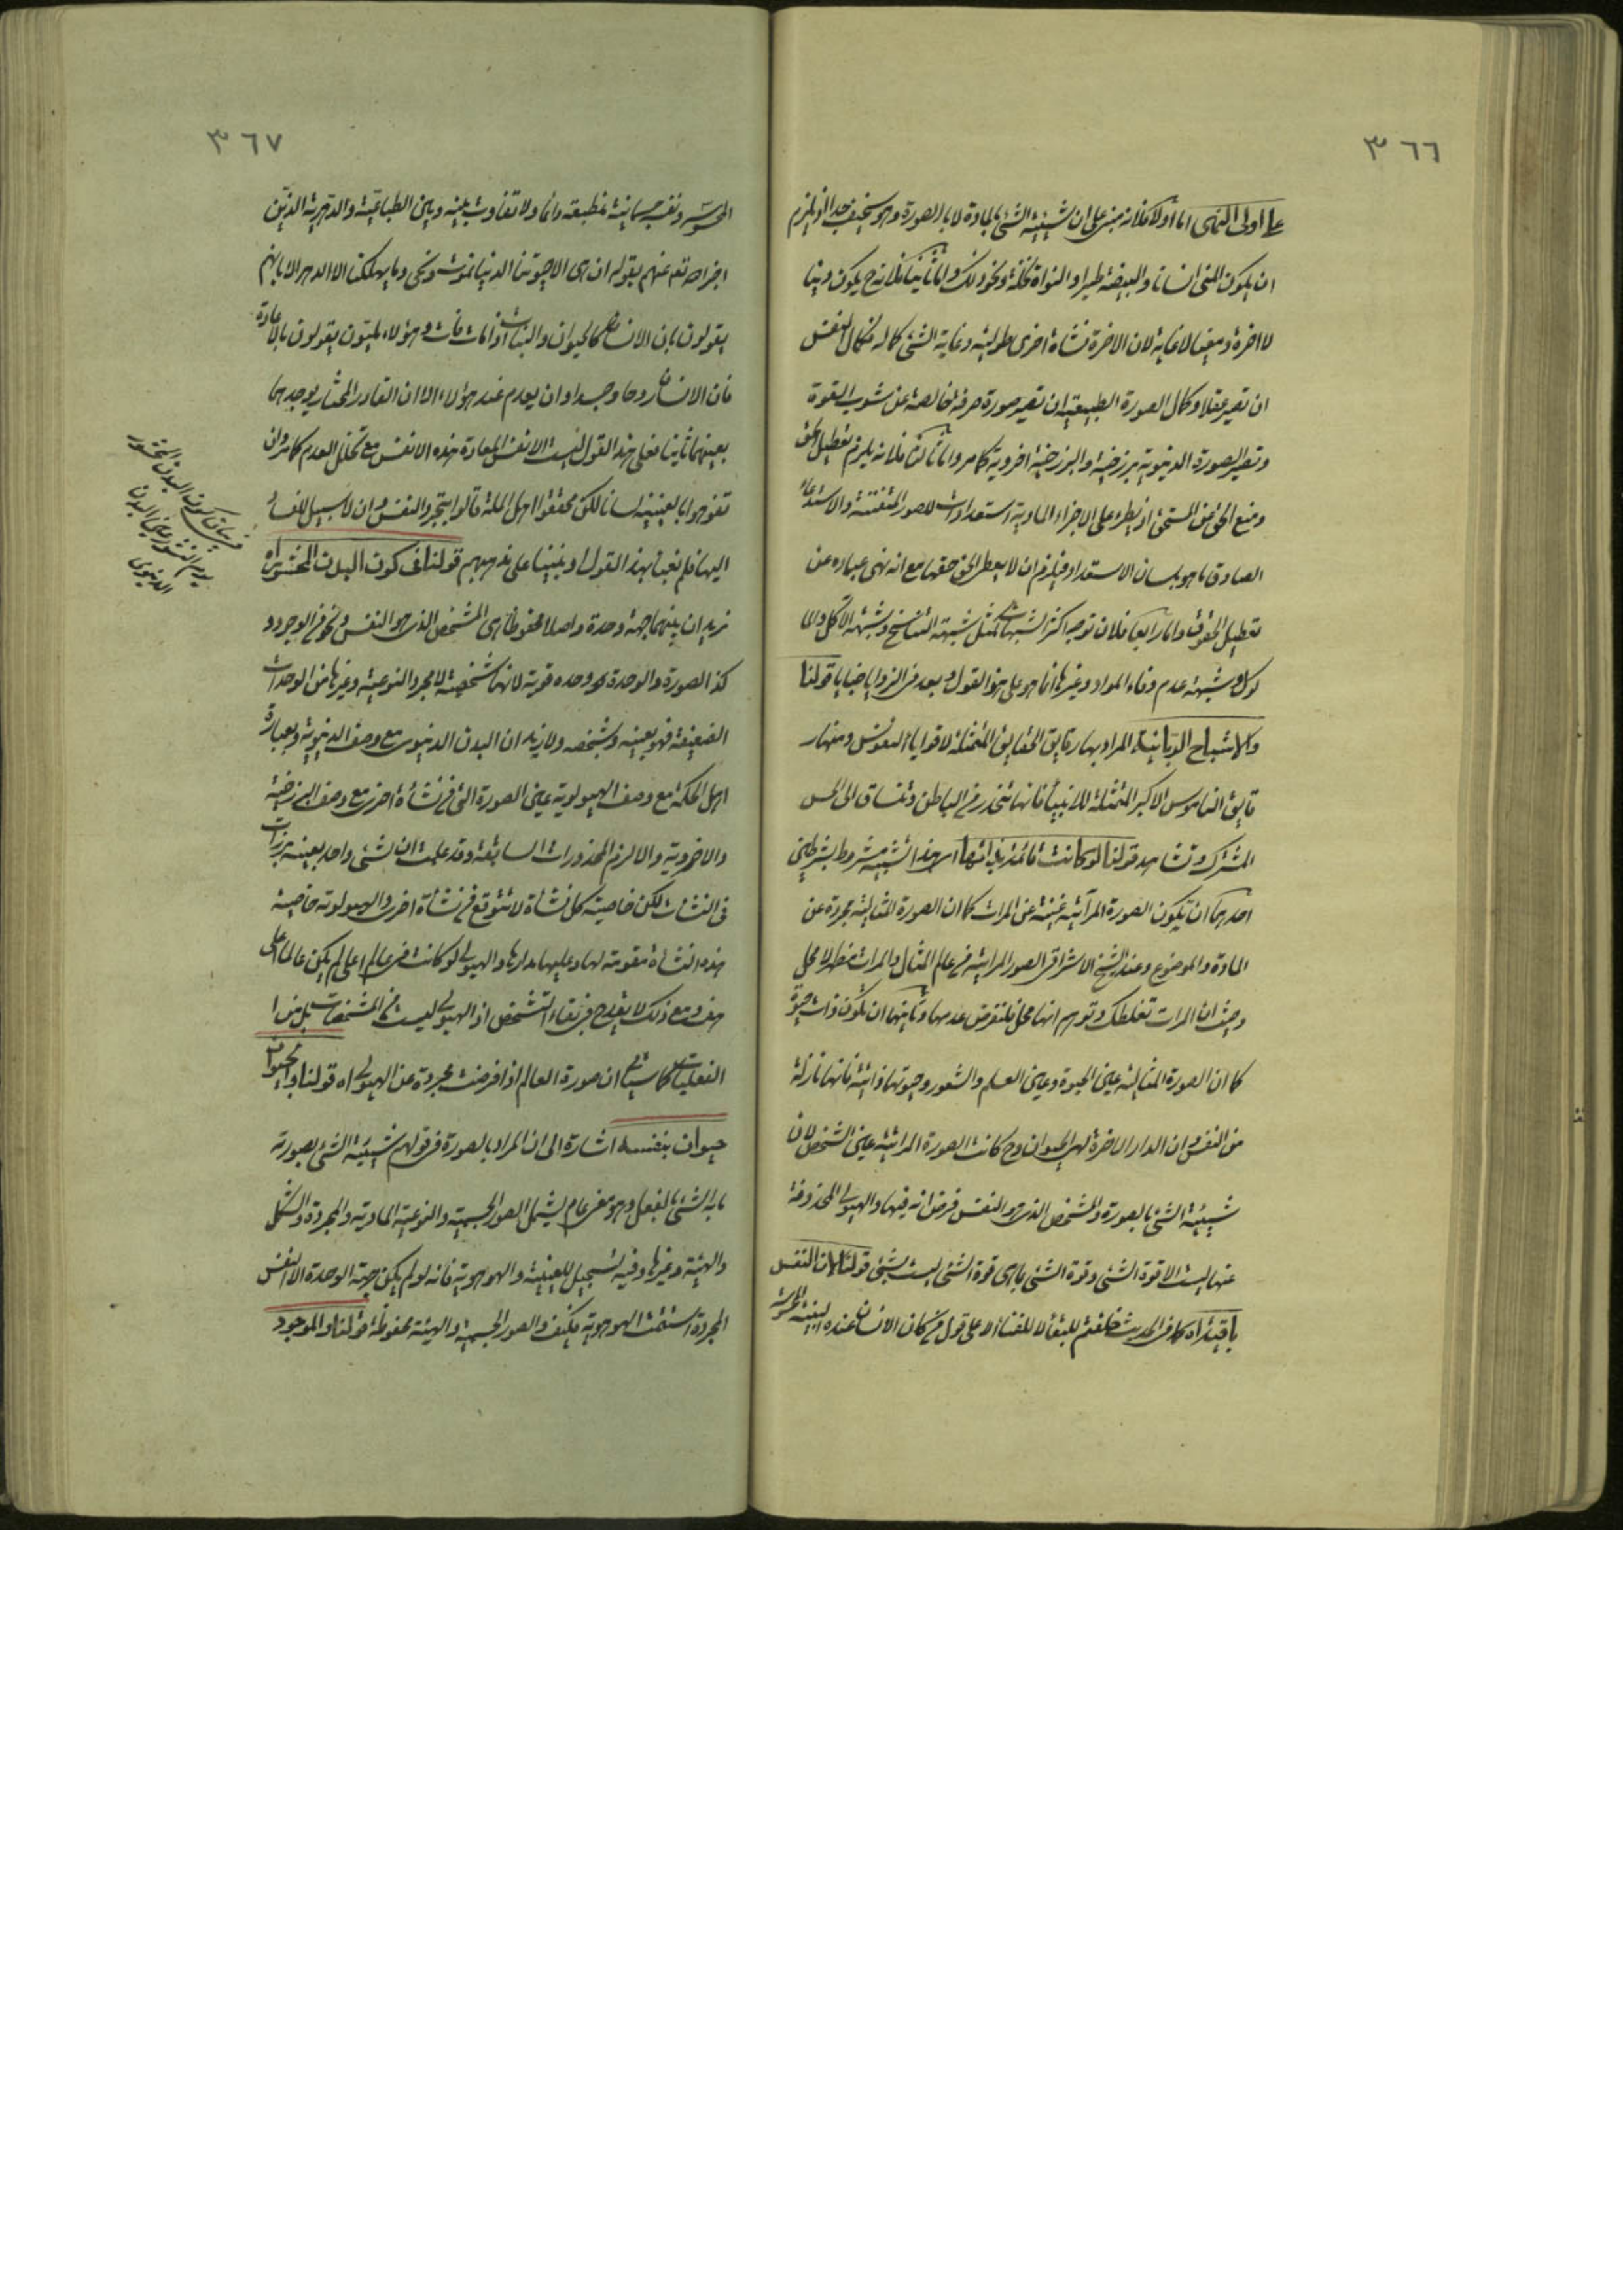 ٣٦٦
على اولى النهى اما اولا فلانه مبنى على ان شيئية الشئ بالمادة لا بالصورة وهو سخيف جدا اذ يلزم
ان يكون المنى انسانا والبيضة طيرا والنواة نخلة ونحو ذلك واما ثانيا فلانه ح يكون دينا
لا اخرة ومغيا لا غاية لان الاخرة نشاة اخرى طولية وغاية الشئ كماله فكمال النفس
ان تصير عقلا وكمال الصورة الطبيعية ان تصير صورة صرفة خالصة عن شوب القوة
وتصير الصورة الدنيوية برزخية والبرزخية اخروية كما مر واما ثالثا فلانه يلزم تعطيل الحق
ومنع الحق عن المستحق اذ يطرء على الاجزاء المادية استعدادات للصور المتفننة والاستدعاء
الصادق ما هو بلسان الاستعداد فيلزم ان لا يعطى الحق حقها مع انه نهى عباده عن
تعطيل الحقوق واما رابعا فلان توجه اكثر الشبهات كمثل شبهة التناسخ وشبهة الاكل والما
كول وشبهة عدم وفاء المواد وغيرها انما هو على هذا القول وبعد فى الزوايا خبايا قولنا
والاشباح الربانية المراد بها رقايق الحقايق المتمثلة لاقوياء النفوس ومنها ر
قايق الناموس الاكبر المتمثلة للانبياء فانها تنحدر من الباطن وتنساق الى الحس
المشترك وتشاهد قولنا لو كانت قائمة بذاتها اى هذا التشبيه مشروط بشرطين
احدهما ان تكون الصورة المرآتية غنية عن المرات كما ان الصورة المثالية مجردة عن
المادة والموضوع وعند الشيخ الاشراقى الصور المراتية فى عالم المثال والمرات مظهر لا محل
وحيث ان المرات تغلطك وتوهم انها محل فلتفرض عدمها وثانيهما ان تكون ذات حيوة
كما ان الصورة المثالية عين الحيوة وعين العلم والشعور وحيوتها ذاتية فانها نازلة
من النفس وان الدار الاخرة لهى الحيوان وح كانت الصورة المراتية عين الشخص لان
شيئية الشئ بالصورة والشخص الذى هو النفس فرض انه فيها والهيولى المحذوفة
عنها ليست الا قوة الشئ وقوة الشئ بما هى قوة الشئ ليست بشئ قولنا لان النفس
باقية اه كما فى الحديث خلقتم للبقاء لا للفناء الا على قول من كان الانسان عنده البنية المحسوسة
٣٦٧
المحسوسة ونفسه جسمانية منطبعة دائما ولا تفاوت بينه وبين الطباعية والدهرية الذين
اخبر الله تعالى عنهم بقوله ان هى الا حيوتنا الدنيا نموت ونحيى وما يهلكنا الا الدهر الا انهم
يقولون بان الانسان كالحيوان والنبات اذا مات فات وهؤلاء المليون يقولون بالاعادة
فان الانسان روحا وجسدا وان يعدم عند هؤلاء الا ان القادر المختار يوجدهما
بعينهما ثانيا فعلى هذا القول ليست الانفس المعادة هذه الانفس مع تخلل العدم كما مر وان
تفوهوا بالعينية لسانا لكن محققوا اهل الملة قالوا بتجرد النفس وان لا سبيل للفساد
اليها فلم نعبأ بهذا القول او بنينا على مذهبهم قولنا فى كون البدن المحشور اه
نريد ان بينهما جهة وحدة واصلا محفوظا هى المشخص الذى هو النفس ونحو من الوجود و
كذا الصورة والوحدة وحدة قوية لانها شخصية لا مجرد النوعية وغيرها من الوحدات
الضعيفة فهو بعينه وشخصه ولا نريد ان البدن الدنيوى مع وصف الدنيوية وبعبارة
اهل الحكمة مع وصف الهيولوية عين الصورة التى فى نشأة اخرى مع وصف البرزخية
والاخروية والا لزم المحذورات السابقة وقد علمت ان لشئ واحد بعينه برزات
فى النشات لكن خاصية كل نشاة لا تتوقع فى نشأة اخرى والهيولوية خاصية
هذه النشاة مقومة لها وعليها مدارها والهيولى لو كانت فى عالم اعلى لم يكن عالما اعلى
هف ومع ذلك لا يقدح فى بقاء التشخص اذ الهيولى ليست من المشخصات بل من ا
لفعليات كما سياتى ان صورة العالم اذا فرضت مجردة عن الهيولى اه قولنا والحيوان
حيوان بنفسه اشارة الى ان المراد بالصورة فى قولهم شيئية الشئ بصورته
ما به الشئ بالفعل وهو معنى عام يشمل الصور الجسمية والنوعية المادية والمجردة والشكل
والهيئة وغيرها وفيه تسجيل للعينية والهوهوية فانه لو لم يكن جهة الوحدة الا النفس
المجردة استتمت الهوهوية فكيف والصور الجسمية والهيئة محفوظة قولنا والموجود
فى بيان كون البدن المحشور
يوم النشور عين البدن
الدنيوى